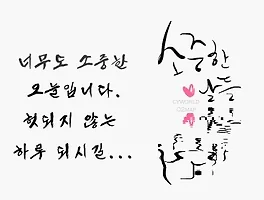 너무도 소중한
오늘입니다.
헛되지 않는
하루 되시길...
소중한
날들